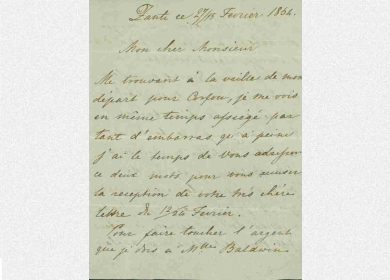 Zante ce 27/15 Février 1854.
Mon cher Monsieur
Me trouvant à la veille de mon
départ pour Corfou, je me vois
en même temps assiégé par
tant d'embarras, qu'à peine
j'ai le temps de vous adresser
ce deux mots pour vous accuser
la reception de votre très chère
lettre du Février.
Pour faire toucher l'argent
que je dois à Baldwin